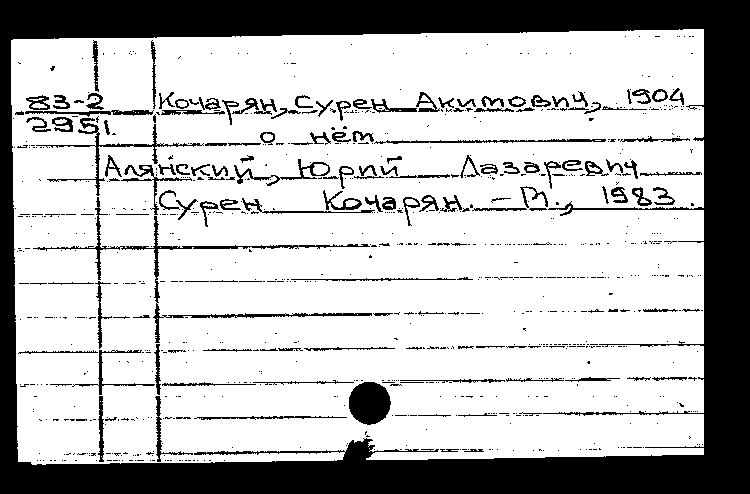 83-2 Кочарян, Сурен Акимович, 1904
2951. о нём
Алянский, Юрий Лазаревич
Сурен Кочарян. – М., 1983.